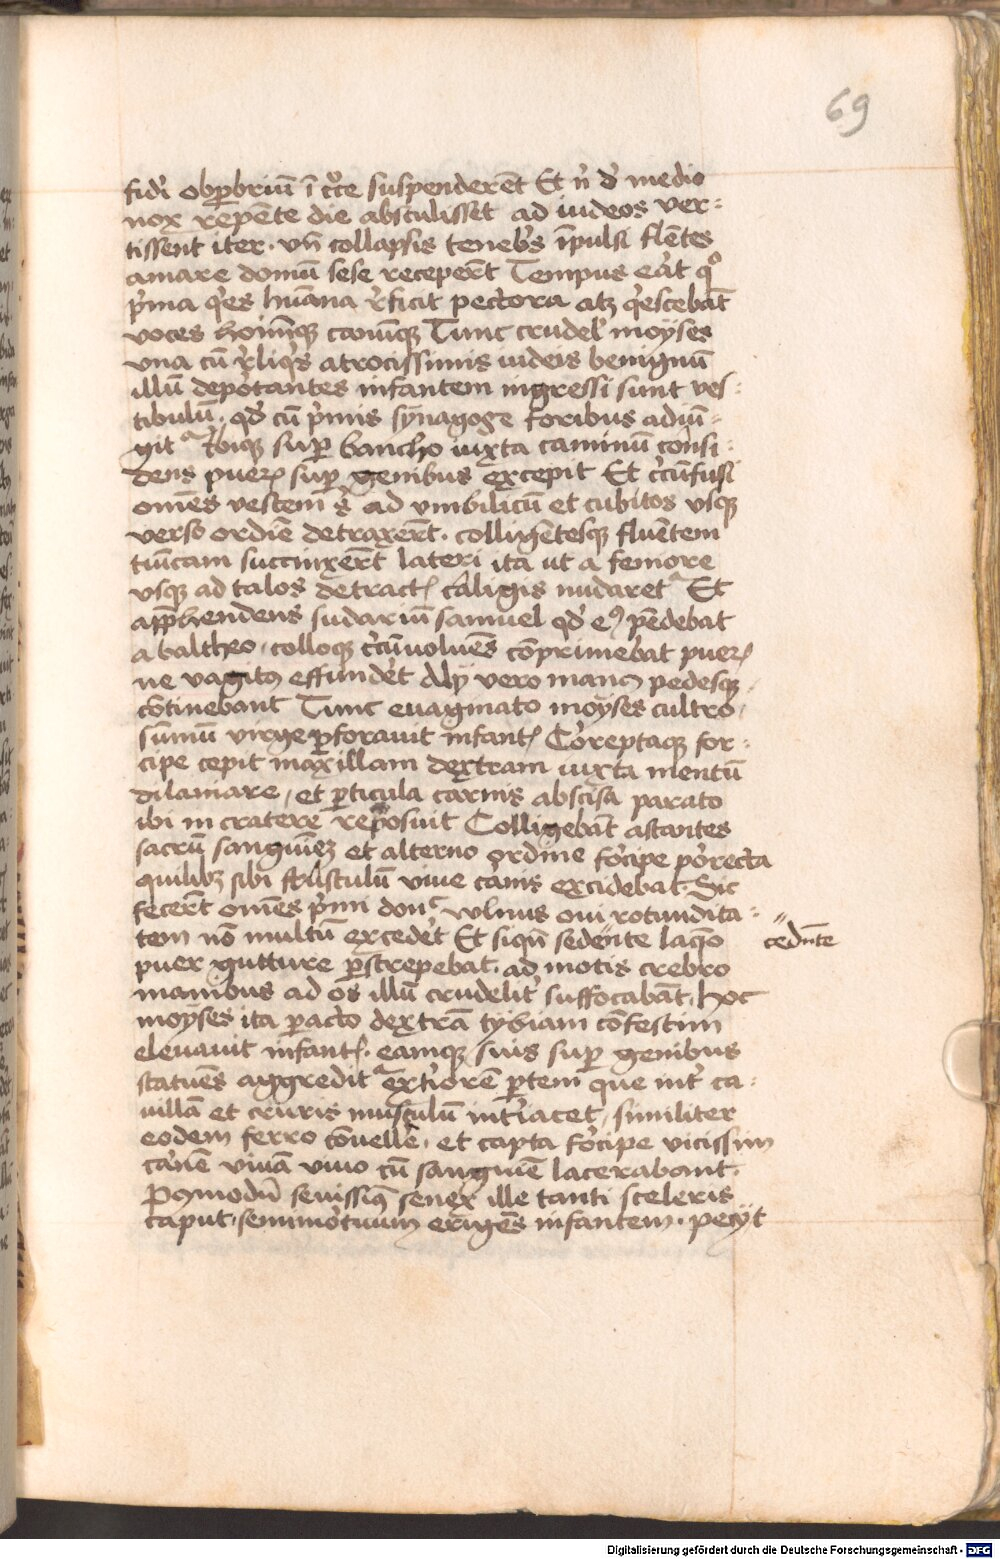 69
fidẽi obꝑbriũ ĩ cͦce suspenderẽt Et nͥ ď medio
nox repẽte die abstulisset ad iudeos ver-
tissent iter. vñ collapsis tenebͥs ĩpulsi flẽtes
amare domũ sese receperẽt Tempus erat qͦ
pͥma qͥes hũana rͤficit pectora atqꝫ qͥescebãt
voces hoĩmqꝫ canũqꝫ Tunc crudelꝰ moyses
vna cũ rͤliqͥs atrocissimis iudeis benignũ
illũ depotantes infantem ingressi sunt ves-
tibulũ. qd' cũ pͥmis synagoge foribus adiũ-
git̉ Ibiqꝫ suꝑ bancho iuxta caminũ consi-
dens pueꝝ suꝑ genibus excepit Et cͥcũfusi
om̃es vestem sͥ ad vmbilicũ et cubitos vsqꝫ
verso ordiẽ detraxerẽt. colligẽtesqꝫ fluẽtem
tunicam succinxerẽt lateri ita ut a femore
vsqꝫ ad talos detractꝭ caligis nudaret̉ Et
app̃hendens sudariũ samuel qd' eiꝰ pẽdebat
a baltheo, colloqꝫ cͥcũuoluẽs cõprimebat pueꝝ
ne vagitꝰ effunderet Alij vero manꝰ pedesqꝫ
cõtinebant Tunc euaginato moyses cultro
sũmũ virge ꝑforauit infantꝭ Correptaqꝫ for-
cipe cepit maxillam dextram iuxta mentũ
dilaniare, et ꝑticula carnis abscisa parato
ibi in cratere reposuit Colligebãt astantes
sacrũ sanguinẽ et alterno ordine forcipe porrecta
quilibꝫ sibi frustulũ viue carnis excidebat. Sic
fecerẽt om̃es pͥmi donͨ vulnus oui rotundita-
tem nõ multũ excederet Et siqñ sedente laqͦo
cedẽnte
puer gutture ꝑstrepebat. ad motis crebro
manibus ad os illũ crudelit̉ suffocabãt. hoc
moyses ita ꝑacto dextrã tybiam cõfestim
eleuauit infantꝭ. eamqꝫ suis suꝑ genibus
statuẽs aggredit̉ exteriorẽ ꝑtem que int̉ ca-
uillã et cruris musculũ int̉iacet, similiter
eodem ferro cõuellẽ. et capta forcipe vicissim
carnẽ viuã viuo cũ sanguiẽ lacerabant.
Pꝰmodũ seuissimꝰ senex ille tanti sceleris
caput. semimortuum erigẽs infantem. pecijt
Digitalisierung gefördert durch die Deutsche Forschungsgemeinschaft - DFG